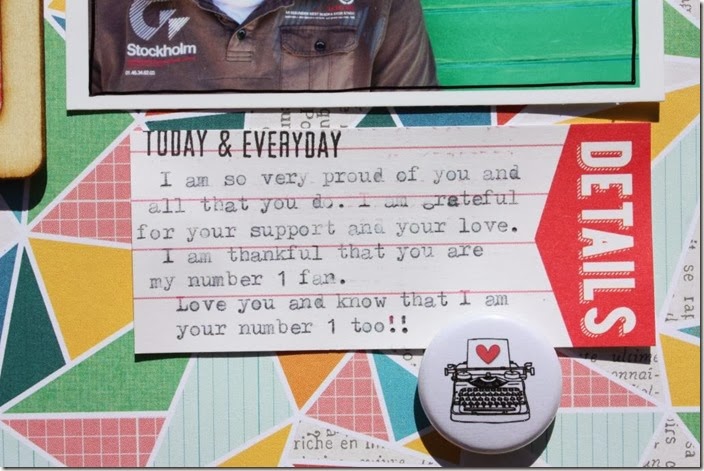 Stockholm
TODAY & EVERYDAY
I am so very proud of you and
all that you do. I am grateful
for your support and your love.
I am thankful that you are
my number 1 fan.
Love you and know that I am
your number 1 too!!
DETAILS
se raf
ultime
connaî-
riche en